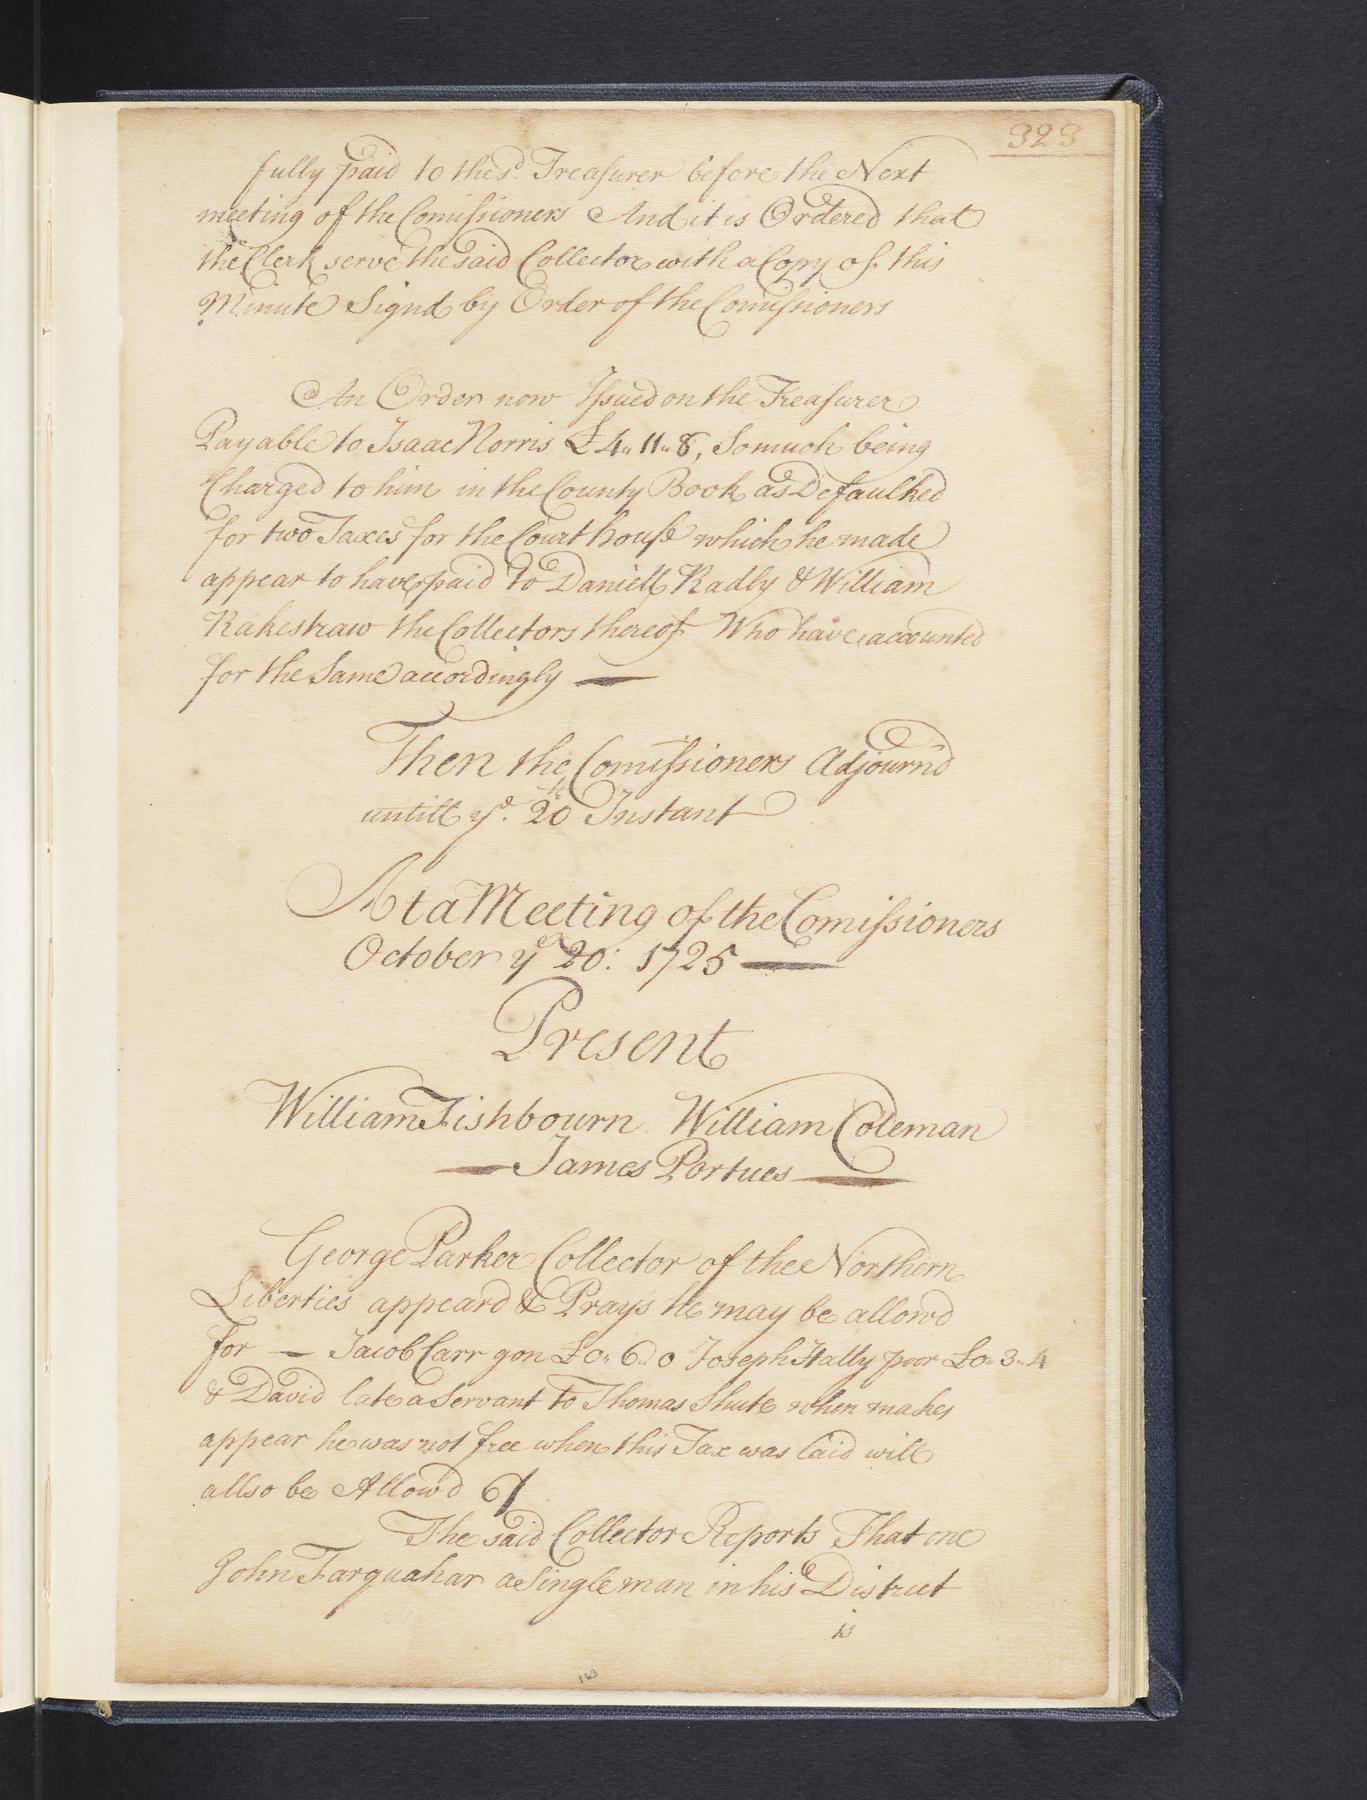 323
fully paid to the sd. Treasurer before the Next
meeting of the Comissioners And it is Ordered that
the Clerk serve the said Collector with a Copy of this
Minute Signd by Order of the Comissioners
An Order now Issued on the Treasurer
Payable to Isaac Norris £4" 11" 8, Somuch being
Charged to him in the County Book as Defaulked
for two Taxes for the Court house which he made
appear to have paid to Daniell Radly & William
Rakestraw the Collectors thereof Who have accounted
for the Same accordingly —
Then the Comissioners Adjourn'd
untill ye. 20th Instant
At a Meeting of the Comissioners
October ye 20: 1725 —
Present
William Fishbourn William Coleman
— James Portues —
George Parker Collector of the Northern
Liberties appeard & Prays he may be allowd
for — Jacob Carr gon £0" 6" 0 Joseph Hally poor £0" 3" 4
& David late a Servant to Thomas Shute when makes
appear he was not free when this Tax was laid will
allso be Allow'd 6/
The said Collector Reports That one
John Farquahar a Single man in his District
is
163